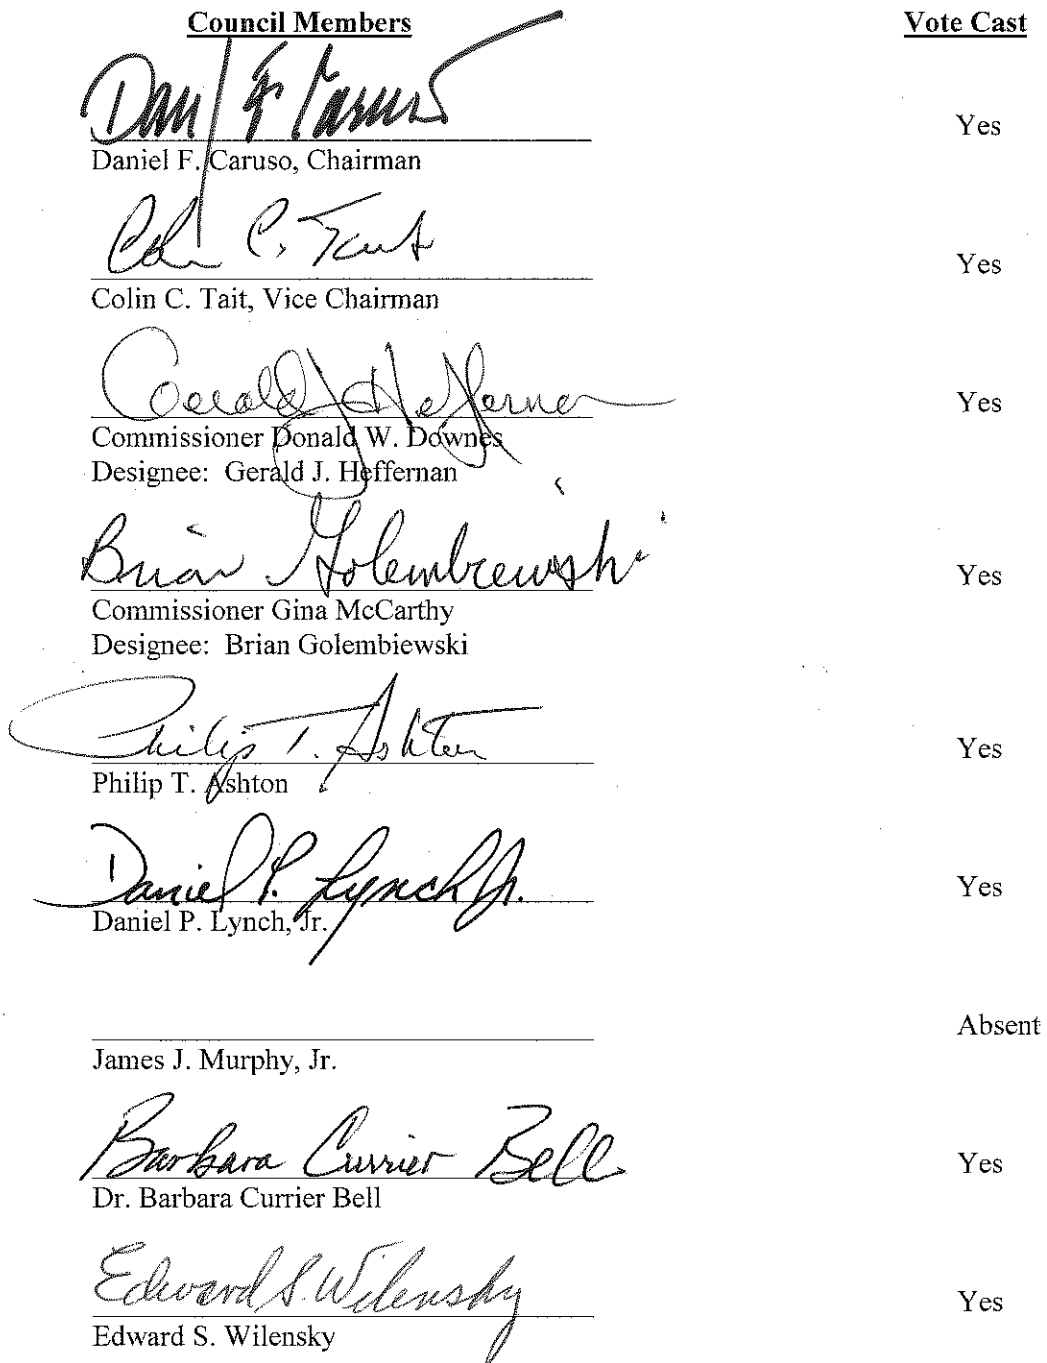 Council Members Vote Cast
Daniel F. Caruso Yes
Daniel F. Caruso, Chairman
Colin C. Tait Yes
Colin C. Tait, Vice Chairman
Gerald J. Heffernan Yes
Commissioner Donald W. Downes
Designee: Gerald J. Heffernan
Brian Golembiewski Yes
Commissioner Gina McCarthy
Designee: Brian Golembiewski
Philip T. Ashton Yes
Philip T. Ashton
Daniel P. Lynch Jr. Yes
Daniel P. Lynch, Jr.
Absent
James J. Murphy, Jr.
Barbara Currier Bell Yes
Dr. Barbara Currier Bell
Edward S. Wilensky Yes
Edward S. Wilensky